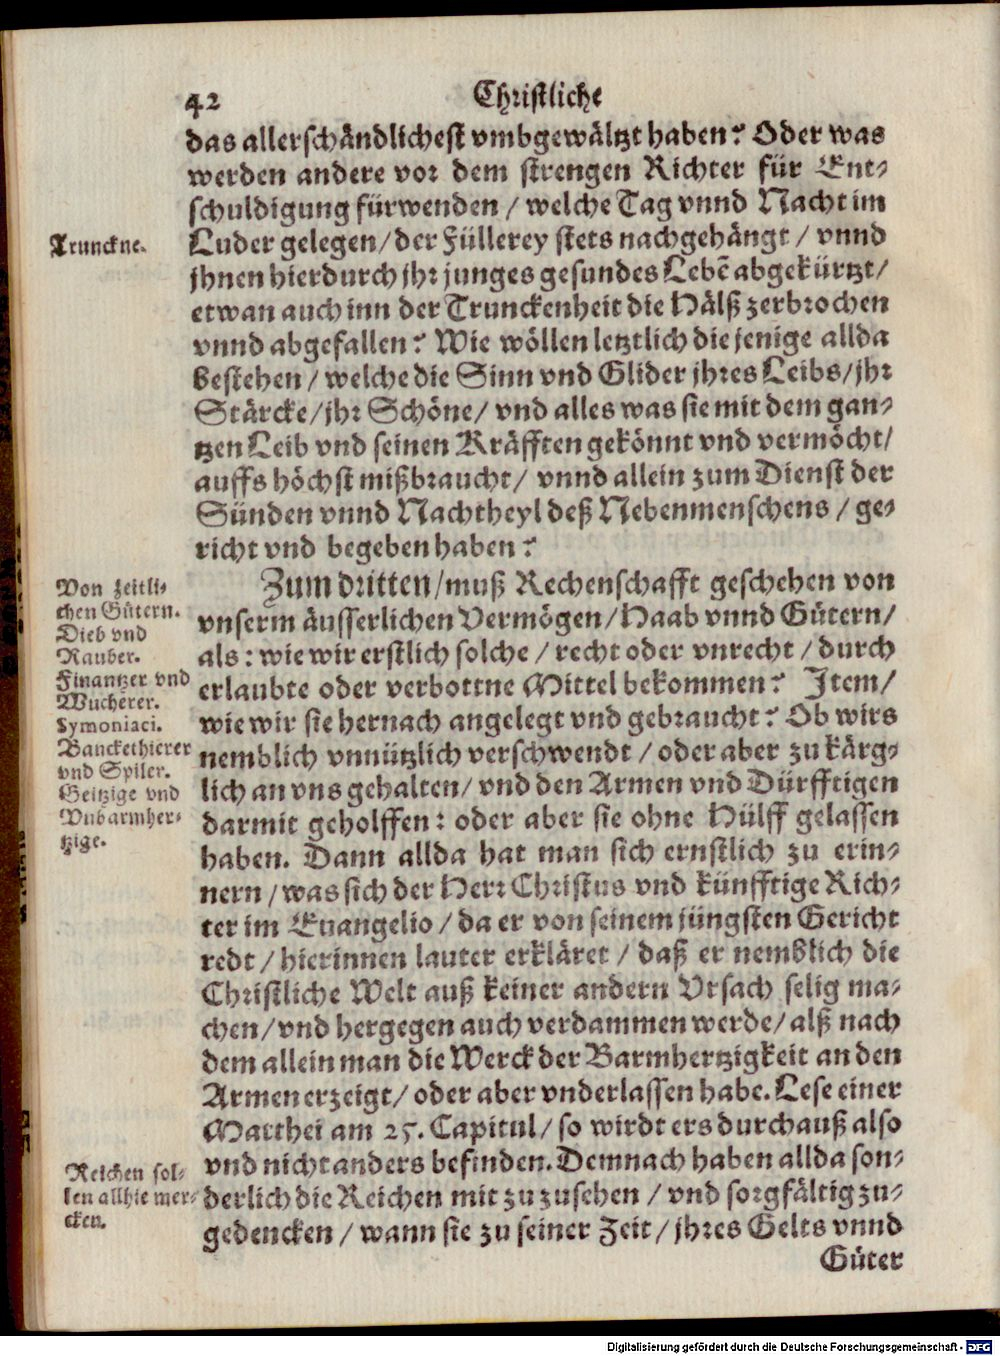 42
Christliche
das allerschändlichest vmbgewältzt haben? Oder was
werden andere vor dem strengen Richter für Ent-
schuldigung fürwenden / welche Tag vnnd Nacht im
Trunckne.
Luder gelegen / der Füllerey stets nachgehängt / vnnd
jhnen hierdurch jhr junges gesundes Lebẽ abgekürtzt /
etwan auch inn der Trunckenheit die Hälß zerbrochen
vnnd abgefallen? Wie wöllen letztlich die jenige allda
bestehen / welche die Sinn vnd Glider jhres Leibs / jhr
Stärcke / jhr Schöne / vnd alles was sie mit dem gan-
tzen Leib vnd seinen Kräfften gekönnt vnd vermöcht /
auffs höchst mißbraucht / vnnd allein zum Dienst der
Sünden vnnd Nachtheyl deß Nebenmenschens / ge-
richt vnd begeben haben?
Von zeitli-
chen Gütern.
Dieb vnd
Rauber.
Finantzer vnd
Wucherer.
Symoniaci.
Banckethierer
vnd Spiler.
Geitzige vnd
Vnbarmher-
tzige.
Zum dritten / muß Rechenschafft geschehen von
vnserm äusserlichen Vermögen / Haab vnnd Gütern /
als: wie wir erstlich solche / recht oder vnrecht / durch
erlaubte oder verbottne Mittel bekommen? Item /
wie wir sie hernach angelegt vnd gebraucht? Ob wirs
nemblich vnnützlich verschwendt / oder aber zu kärg-
lich an vns gehalten / vnd den Armen vnd Dürfftigen
darmit geholffen: oder aber sie ohne Hülff gelassen
haben. Dann allda hat man sich ernstlich zu erin-
nern / was sich der Herr Christus vnd künfftige Rich-
ter im Euangelio / da er von seinem jüngsten Gericht
redt / hierinnen lauter erkläret / daß er nemblich die
Christliche Welt auß keiner andern Vrsach selig ma-
chen / vnd hergegen auch verdammen werde / alß nach
dem allein man die Werck der Barmhertzigkeit an den
Armen erzeigt / oder aber vnderlassen habe. Lese einer
Matthei am 25. Capitul / so wirdt ers durchauß also
vnd nicht anders befinden. Demnach haben allda son-
Reichen sol-
len allhie mer-
cken.
derlich die Reichen mit zu zusehen / vnd sorgfältig zu-
gedencken / wann sie zu seiner Zeit / jhres Gelts vnnd
Güter
Digitalisierung gefördert durch die Deutsche Forschungsgemeinschaft - DFG